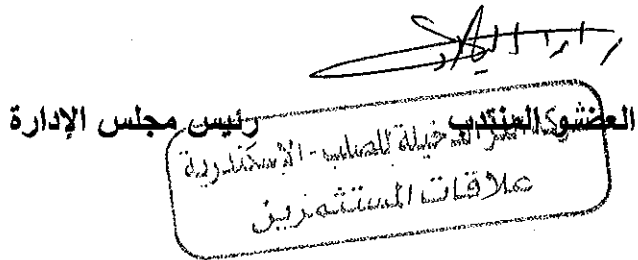 العضو المنتدب رئيس مجلس الإدارة
خيلة للصلب - الإسكندرية
علاقات المستثمرين